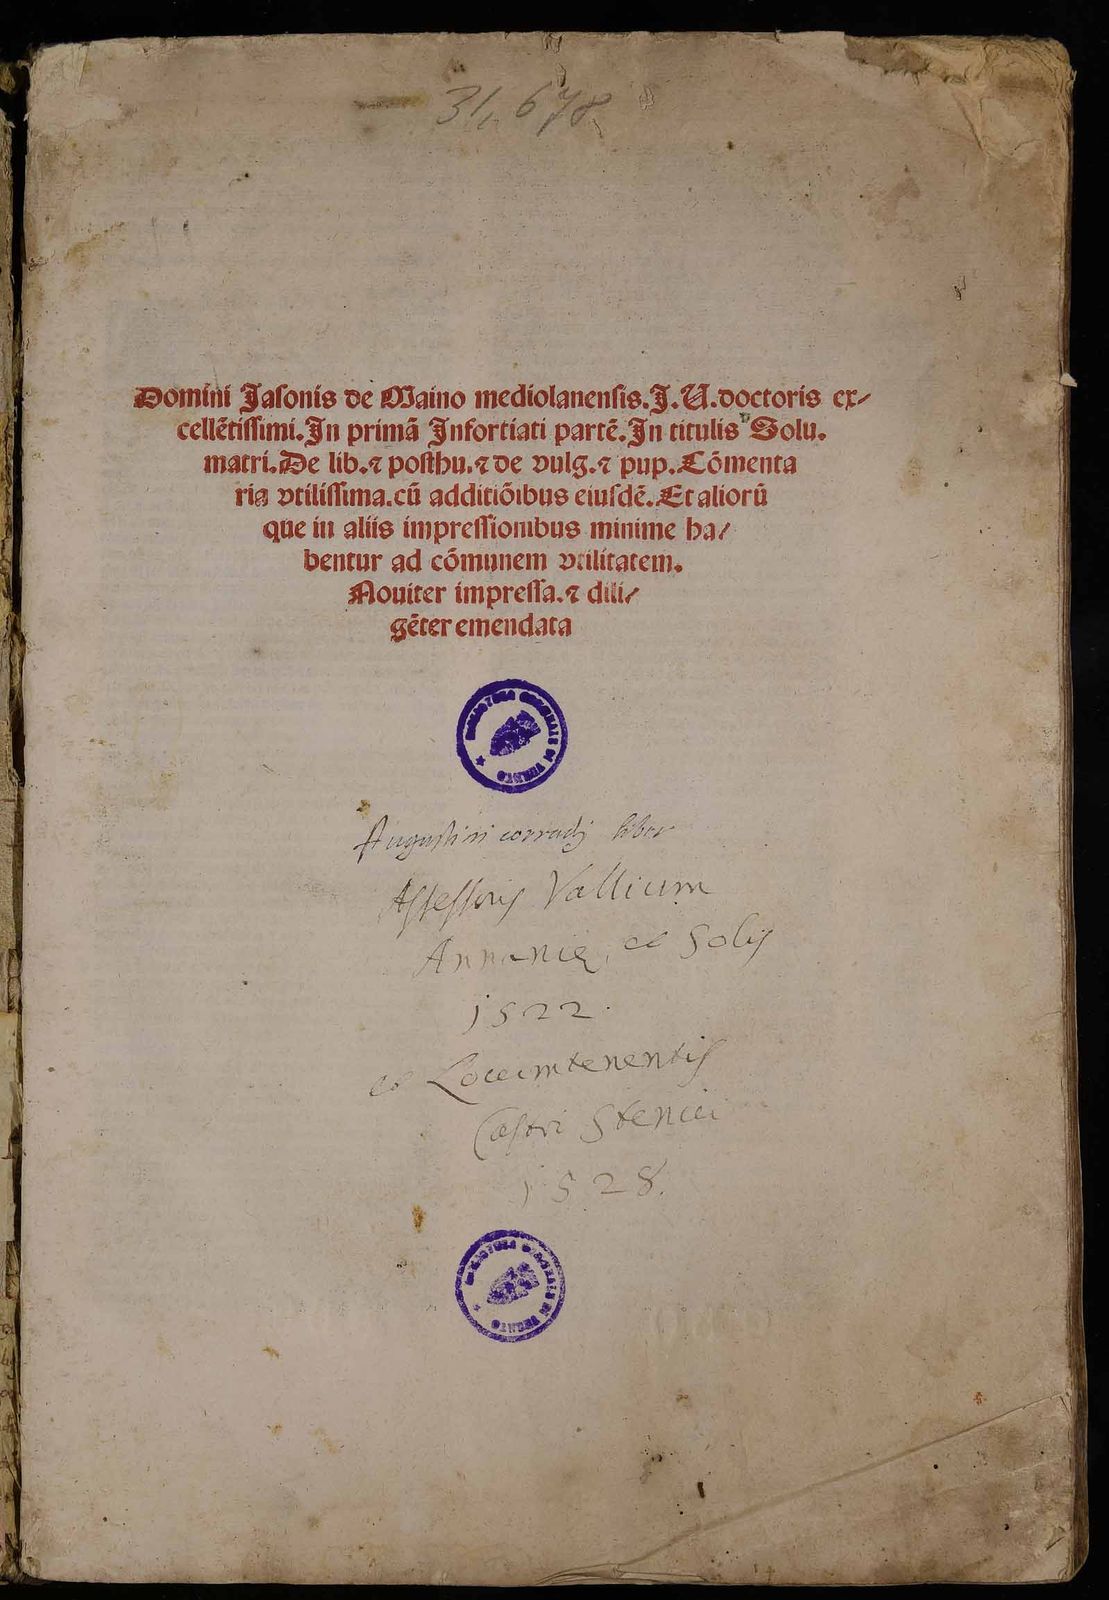 31,678
Domini Jasonis de Maino mediolanensis. J. U. doctoris ex-
cellẽtissimi. In primã Infortiati partẽ. In titulis Solu.
matri. De lib. ⁊ posthu. ⁊ de vulg. ⁊ pup. Cõmenta
ria vtilissima. cũ additiõibus eiusdẽ. Et aliorũ
que in aliis impressionibus minime ha-
bentur ad cõmunem vtilitatem.
Nouiter impressa. ⁊ dili-
gẽter emendata
BIBLIOTECA COMUNALE DI TRENTO
Augustini corradj liber
Assessoris Vallium
Annanię, et Solis
1522.
et Locumtenentis
Castri Stenici
1528.
BIBLIOTECA COMUNALE DI TRENTO